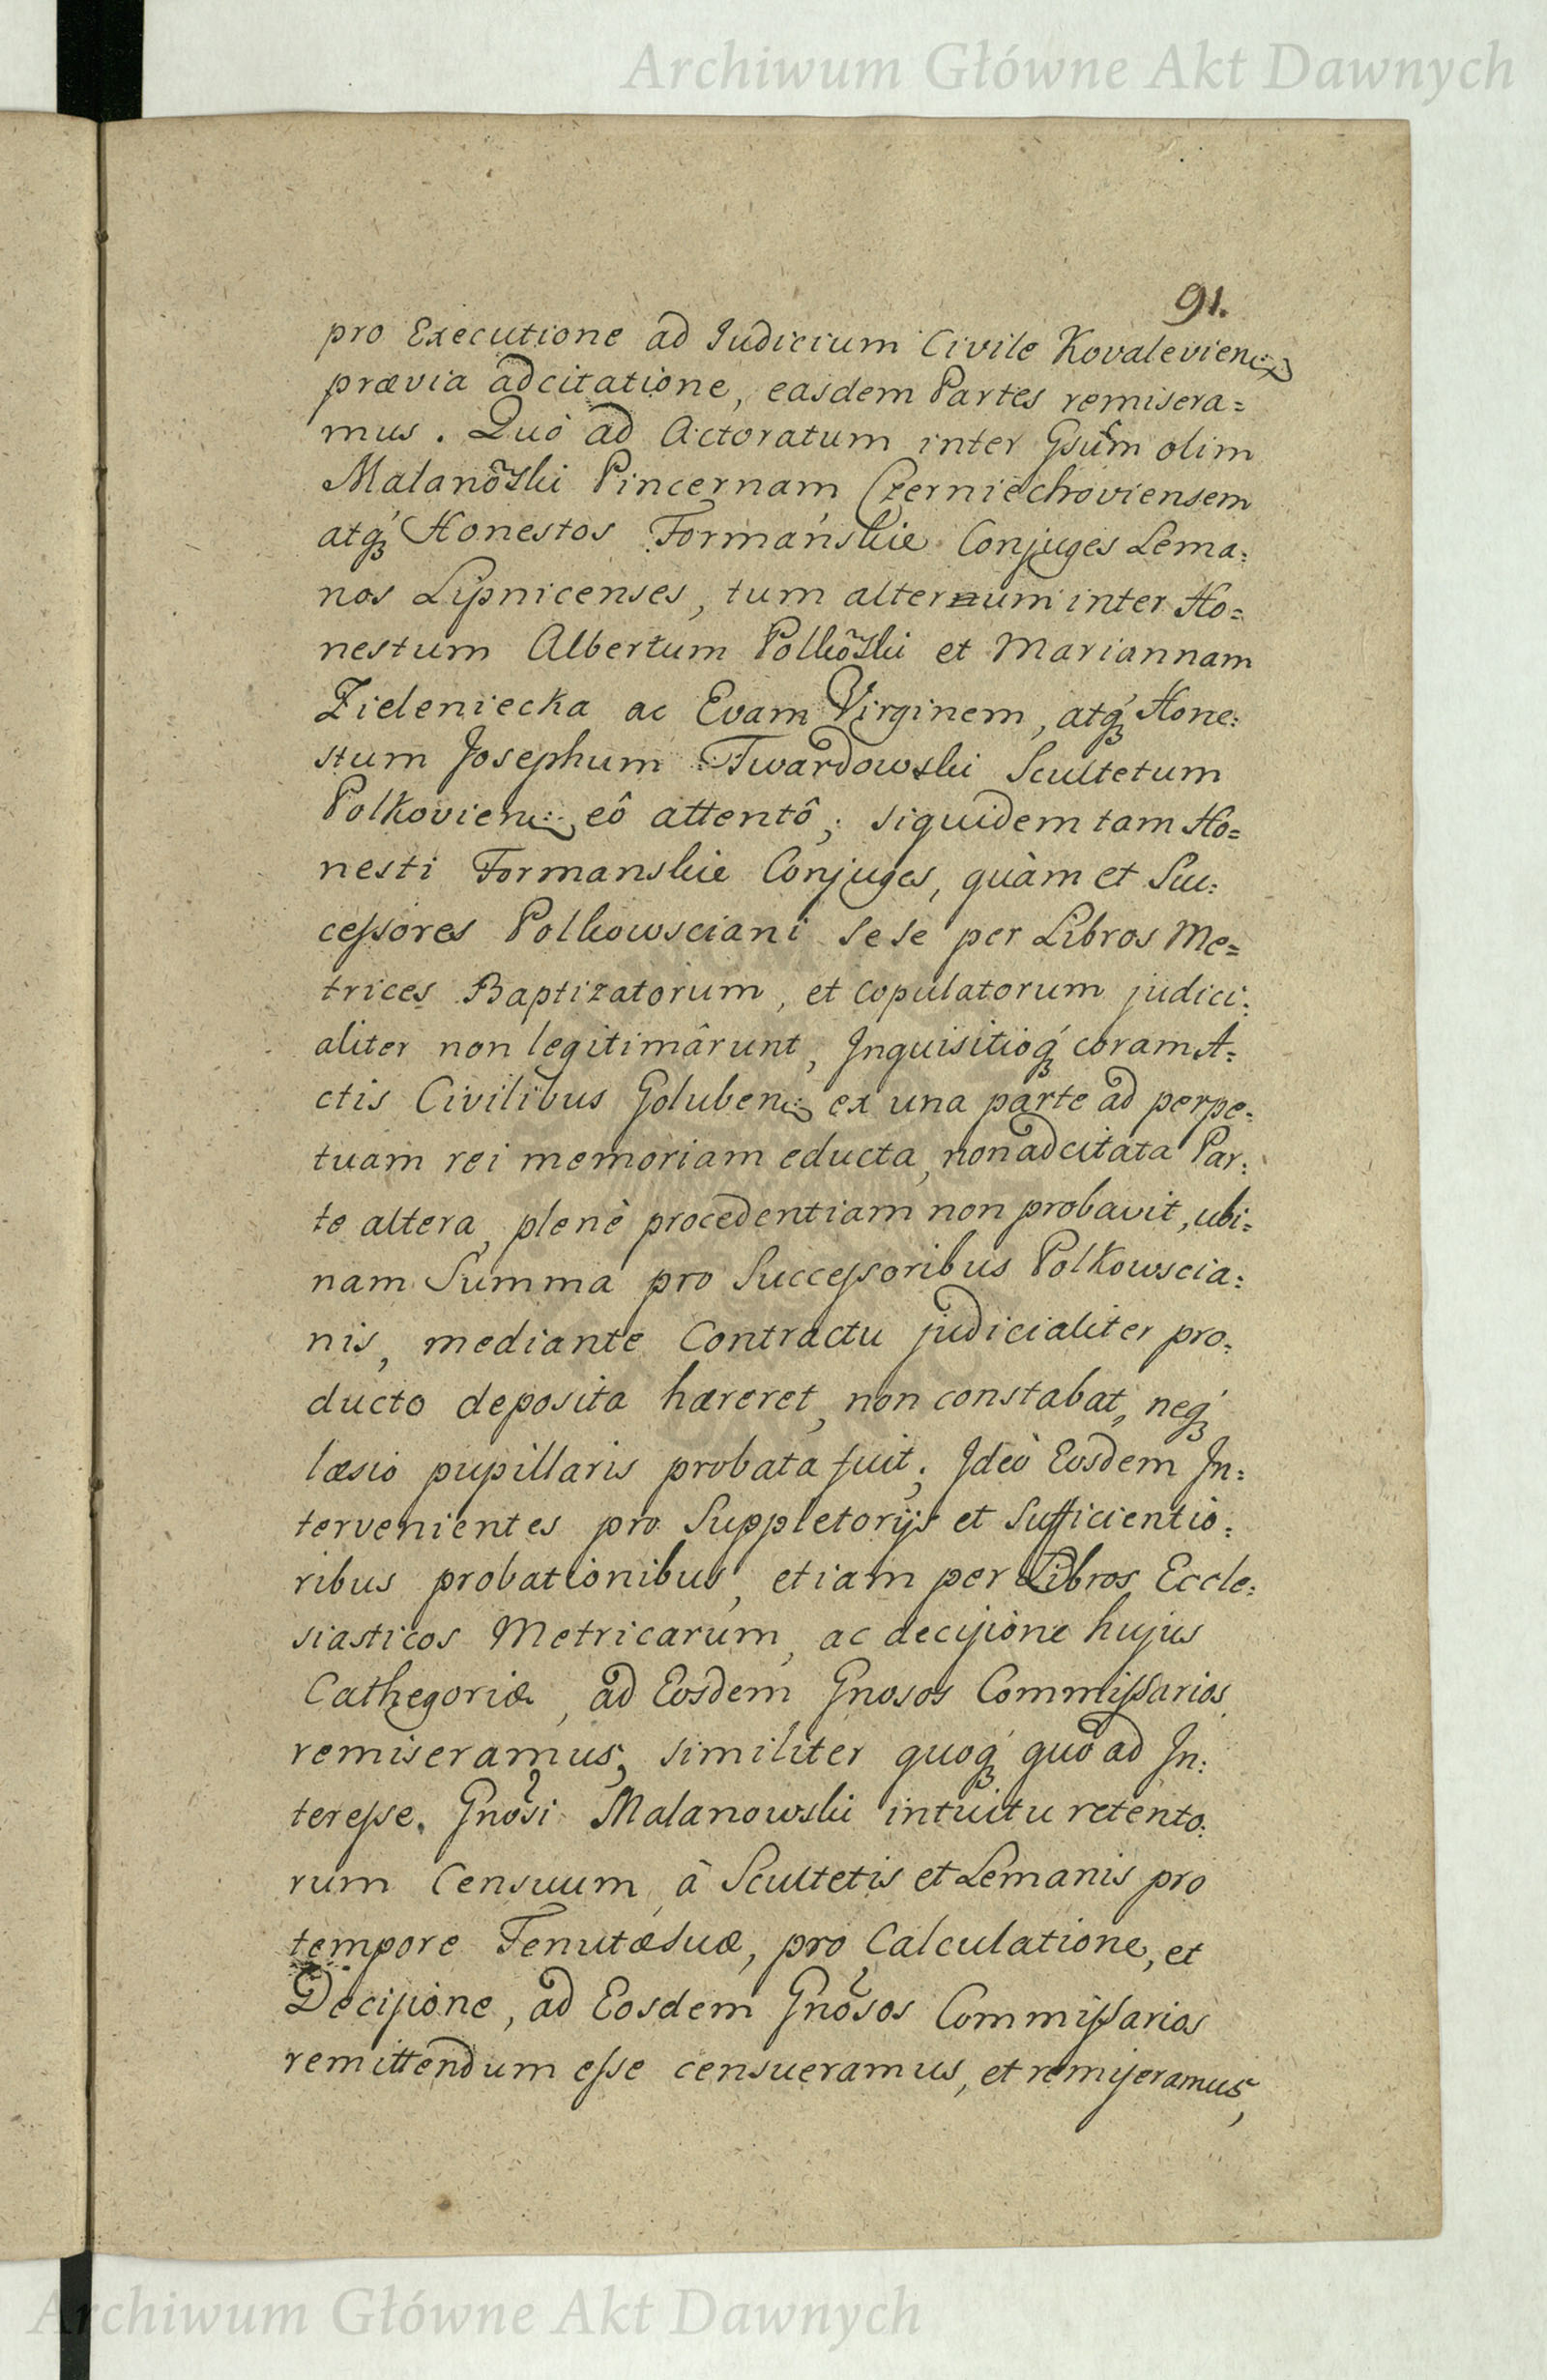 Archiwum Główne Akt Dawnych
91.
pro Executione ad Judicium Civile Kovalevien:
prævia adcitatione, easdem Partes remisera=
mus. Quò ad Actoratum inter Gsum olim
Malanôski Pincernam Czerniechoviensem
atq́ Honestos Formańskie Conjuges Lema:
nos Lipnicenses, tum alternum inter Ho=
nestum Albertum Polkôski et Mariannam
Zieleniecka ac Evam Virginem, atq́ Hone:
stum Josephum Twardowski Scultetum
Polkovien: eô attentô; siquidem tam Ho=
nesti Formanskie Conjuges, quàm et Suc:
cessores Polkowsciani sese per Libros Me=
trices Baptizatorum, et copulatorum judici:
aliter non legitimârunt, Inquisitioq́ coram A=
ctis Civilibus Goluben: ex una parte ad perpe=
tuam rei memoriam educta, non adcitata Par:
te altera, plenè procedentiam non probavit, ubi=
nam Summa pro Successoribus Polkowscia:
nis, mediante Contractu judicialiter pro:
ducto deposita hæreret, non constabat, neq́
læsio pupillaris probata fuit; Ideò Eosdem In:
tervenientes pro Suppletorijs et Sufficientio:
ribus probationibus, etiam per Libros Eccle:
siasticos Metricarum, ac decisione hujus
Cathegoriæ, ad Eosdem Gnosos Commissarios
remiseramus, similiter quoq́ quò ad In:
teresse. Gnosi Malanowski intuitu retento:
rum Censuum, à Scultetis et Lemanis pro
tempore Tenutæ suæ, pro Calculatione, et
Decisione, ad Eosdem Gnosos Commissarios
remittendum esse censueramus, et remiseramus,
Archiwum Główne Akt Dawnych